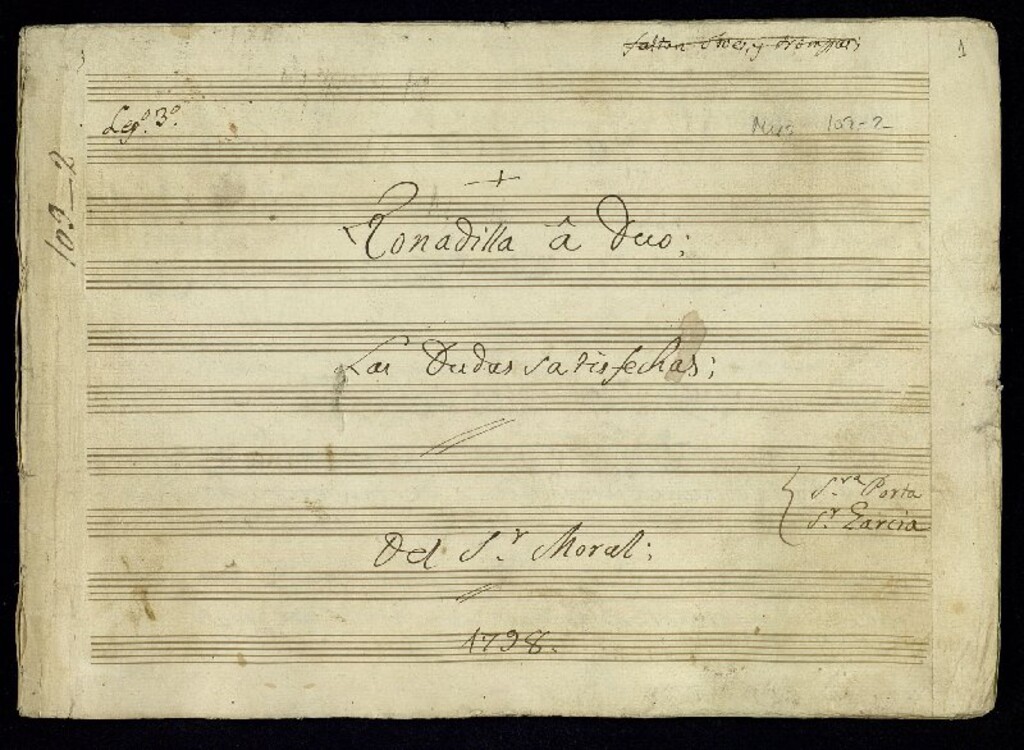 faltan oboes, y trompas;
1
Leg.º 3.º
Mus 103-2
103-2
Tonadilla â Duo;
Las Dudas satisfechas;
S.ra Porta
S.r Garcia
Del S.r Moral;
1798.